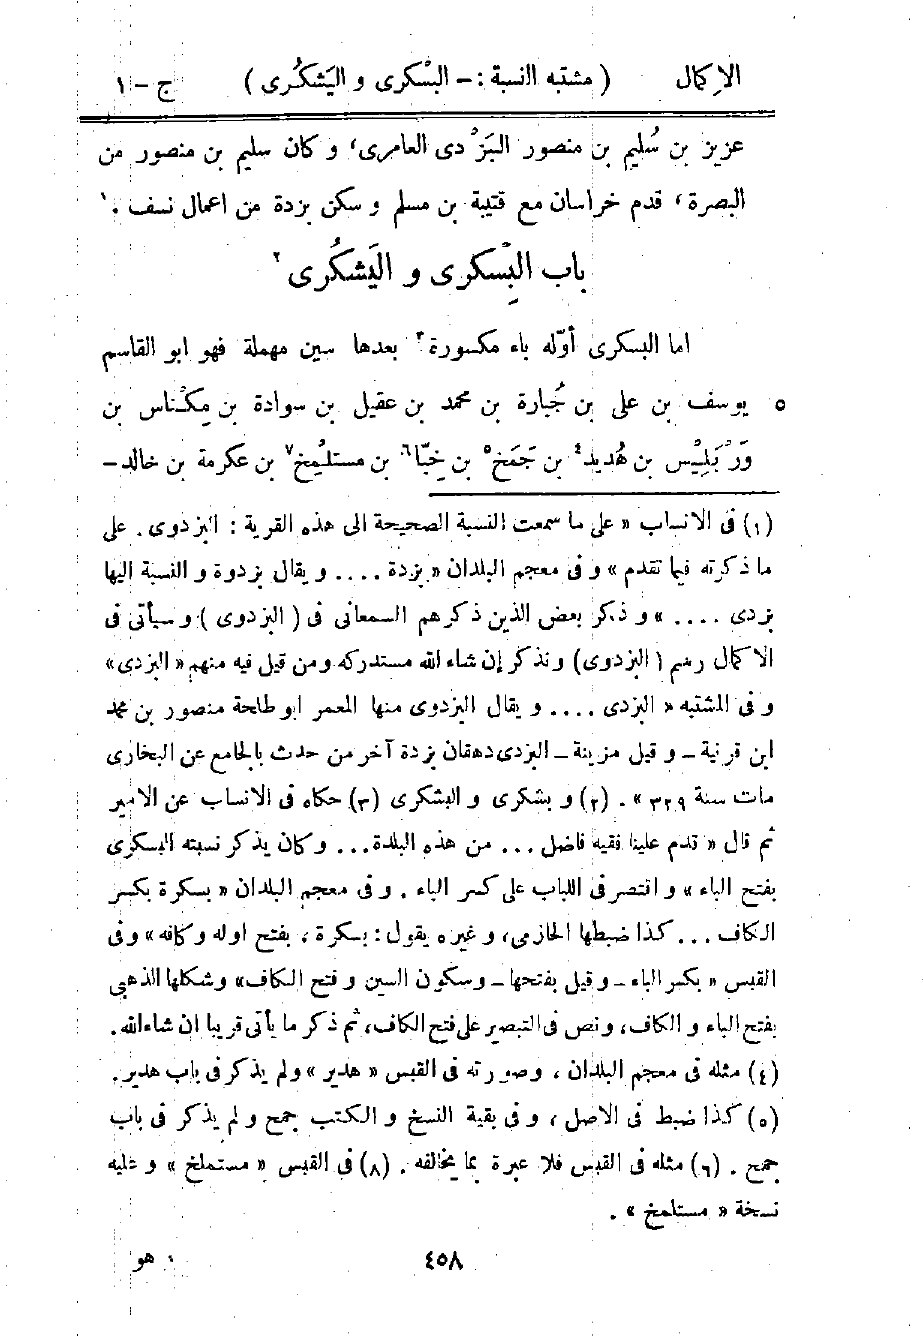 الإكمال ( مشتبه النسبة : – البسْكرى و اليَشكُرى ) ج – ١
عزيز بن سُليم بن منصور البَزْدى العامرى، و كان سليم بن منصور من
البصرة، قدم خراسان مع قتيبة بن مسلم و سكن بزدة من اعمال نسف .١
باب البِسْكرى و اليَشكُرى٢
اما البسكرى أوّله باء مكسورة٣ بعدها سين مهملة فهو ابو القاسم
٥ يوسف بن على بن جُبارة بن محمد بن عقيل بن سوادة بن مِكْناس بن
وَرْبَلِيْس بن هُديد٤ بن جَمَخ٥ بن خِبّا٦ بن مستلْمِخ٧ بن عكرمة بن خالد–
(١) فى الانساب « على ما سمعت النسبة الصحيحة الى هذه القرية : البزدوى . على
ما ذكرته فيما تقدم » و فى معجم البلدان « بزدة .... و يقال بزدوة و النسبة اليها
بزدى .... » و ذكر بعض الذين ذكرهم السمعانى فى ( البزدوى ) و سيأتى فى
الاكمال رسم ( البزدوى) و نذكر إن شاء الله مستدركه ومن قيل فيه منهم « البزدى»
و فى المشتبه « البزدى .... و يقال البزدوى منها المعمر ابو طلحة منصور بن محمد
ابن قرنية – و قيل مزينة – البزدى دهقان بزدة آخر من حدث بالجامع عن البخارى
مات سنة ٣٢٩ » . (٢) و بشكرى و البشكرى (٣) حكاه فى الانساب عن الامير
ثم قال « قدم علينا فقيه فاضل ... من هذه البلدة... و كان يذكر نسبته البسكرى
بفتح الباء » و اقتصر فى اللباب على كسر الباء . و فى معجم البلدان « بسكرة بكسر
الكاف ... كذا ضبطها الحازمى، و غيره يقول : بسكرة ، بفتح اوله و كافه » و فى
القبس « بكسر الباء – و قيل بفتحها – و سكون السين و فتح الكاف» و شكلها الذهبى
بفتح الباء و الكاف، و نص فى التبصير على فتح الكاف، ثم ذكر ما يأتى قريبا ان شاء الله.
(٤) مثله فى معجم البلدان ، و صورته فى القبس « هدير » و لم يذكر فى باب هدير.
(٥) كذا ضبط فى الاصل ، و فى بقية النسخ و الكتب جمح و لم يذكر فى باب
جمح . (٦) مثله فى القبس فلا عبرة بما يخالفه . (٨) فى القبس « مستملخ » و عليه
نسخة « مستلمخ » .
٤٥٨ هو